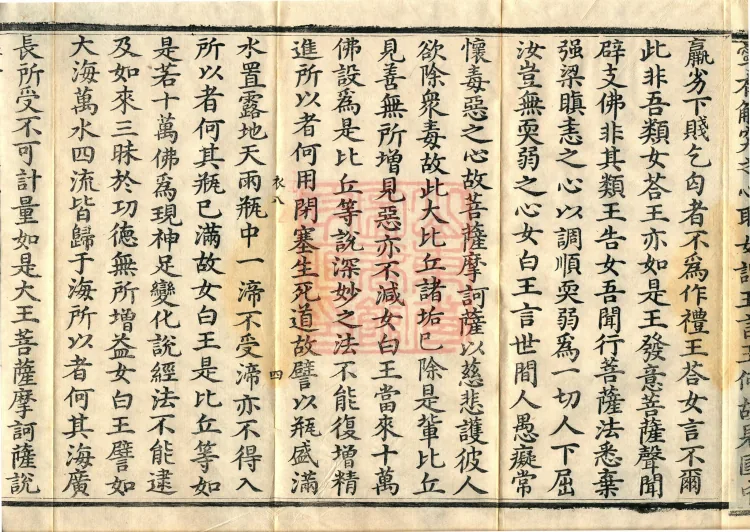 羸劣下賤乞匃者不爲作禮王荅女言不爾
此非吾類女荅王亦如是王發意菩薩聲聞
辟支佛非其類王告女吾聞行菩薩法悉棄
强梁瞋恚之心以調順耎弱爲一切人下屈
汝豈無耎弱之心女白王言世間人愚癡常
懷毒惡之心故菩薩摩訶薩以慈悲護彼人
欲除衆毒故此大比丘諸垢已除是輩比丘
見善無所增見惡亦不減女白王當來十萬
佛設爲是比丘等說深妙之法不能復增精
進所以者何用閉塞生死道故譬以瓶盛滿
衣八 四
水置露地天雨瓶中一渧不受渧亦不得入
所以者何其瓶已滿故女白王是比丘等如
是若十萬佛爲現神足變化說經法不能逮
及如來三昧於功德無所增益女白王譬如
大海萬水四流皆歸于海所以者何其海廣
長所受不可計量如是大王菩薩摩訶薩說